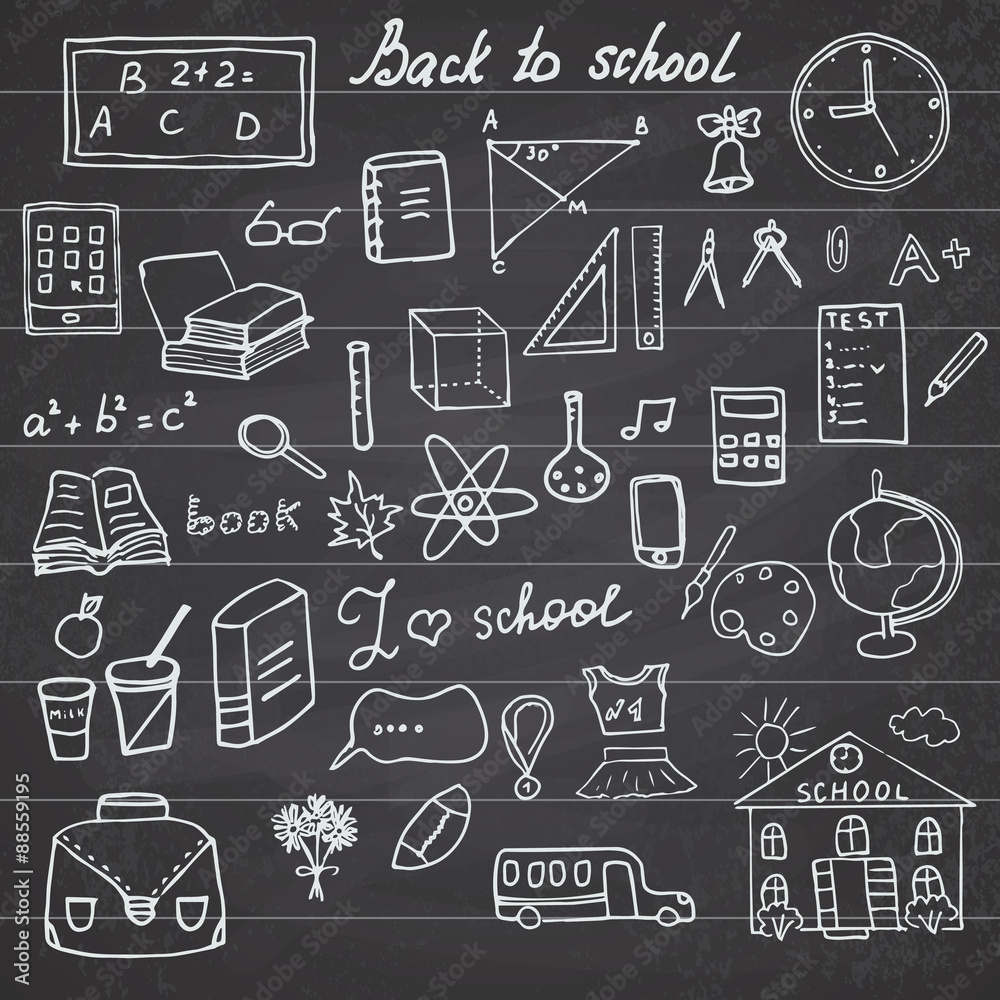 Back to school
B 2+2=
A C D
A B
30°
M
C
A+
TEST
1.
2.
3.
4.
5.
a² + b² = c²
book
I ♡ school
Milk
....
№1
1
SCHOOL
Adobe Stock | #88559195
Adobe Stock